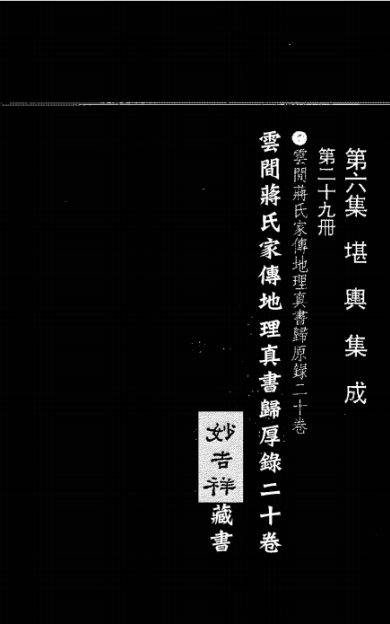 第六集 堪輿集成
第二十九冊
雲間蔣氏家傳地理真書歸原錄二十卷
雲間蔣氏家傳地理真書歸厚錄二十卷
妙吉祥藏書